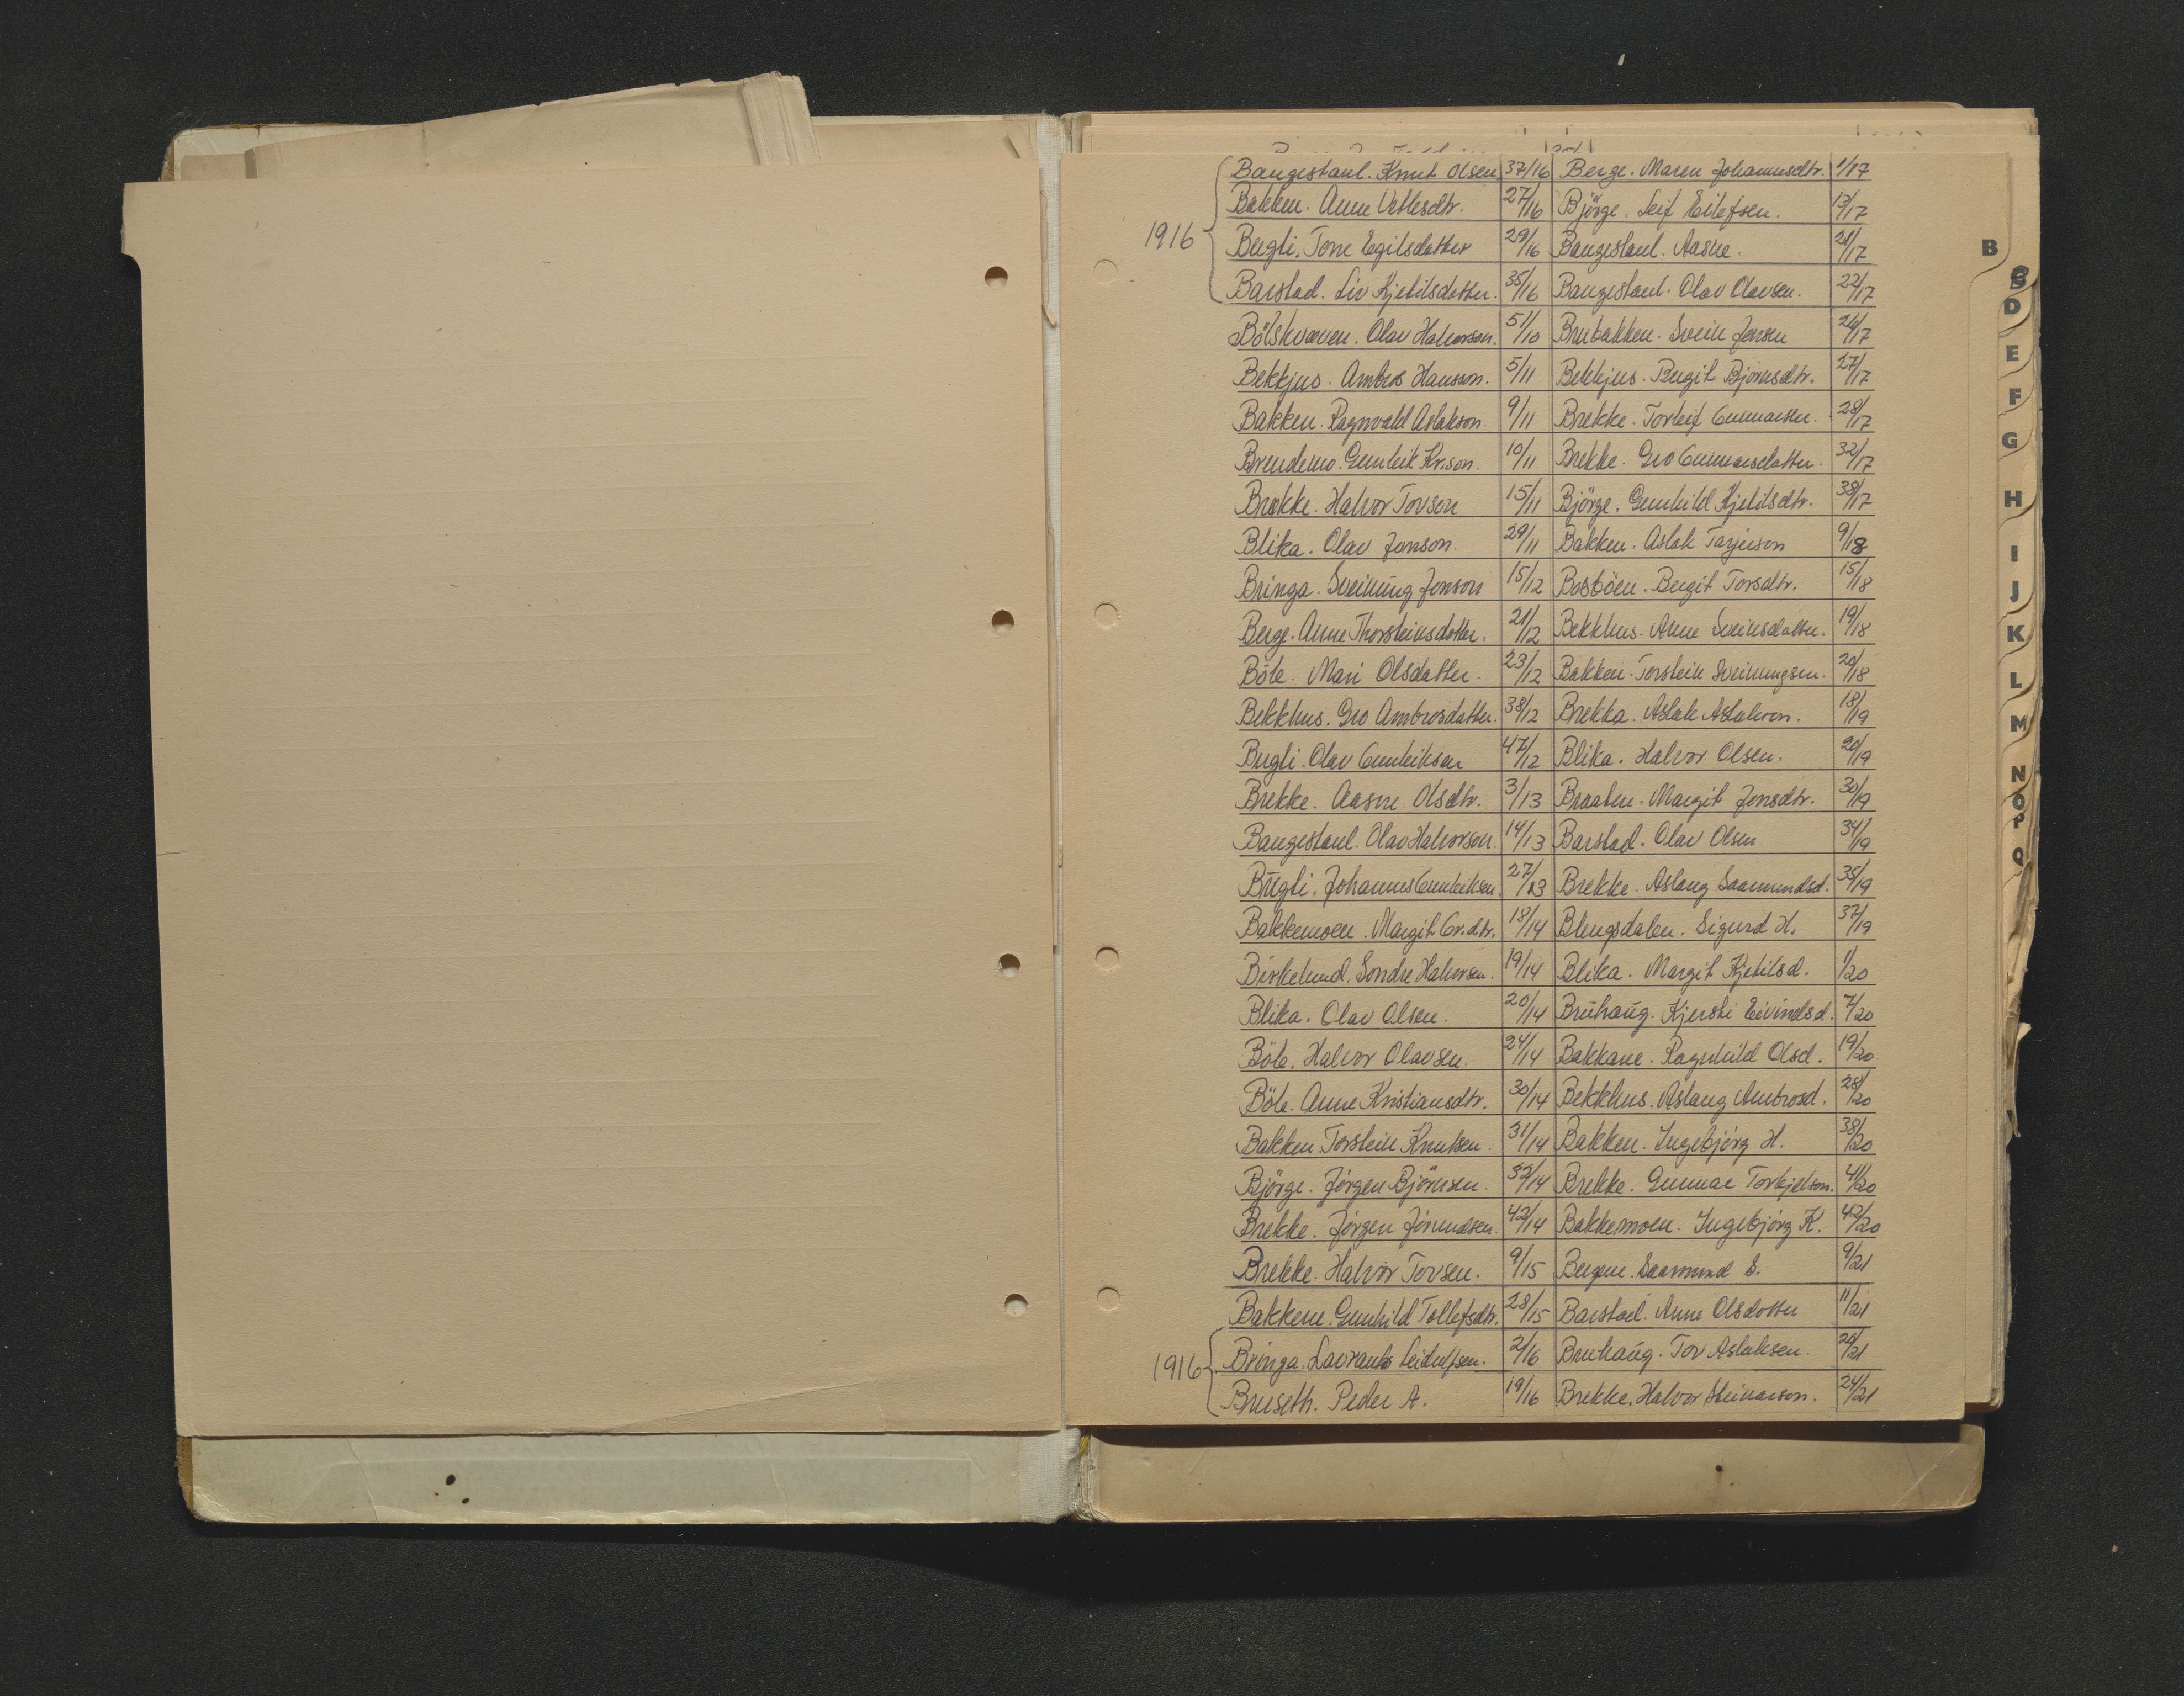 Baugestaul. Knut Olsen 37/16 Berge. Maren Johannesdtr. 1/17
Bakken. Anne Vetlesdtr. 27/16 Björge. Leif Eilefsen. 13/17
1916 Bugli. Tone Egilsdatter 29/16 Baugestaul. Aasne. 21/17
Barstad. Liv Kjetilsdatter. 35/16 Baugestaul. Olav Olavsen. 22/17
Bölskvæven. Olav Halvorson. 51/10 Brubakken. Svein Jensen 26/17
Bekkjus. Ambros Hansson. 5/11 Bekkjus. Bergit Bjørnsdtr. 27/17
Bakken. Ragnvald Aslakson. 9/11 Brekke. Torleif Gunnarsen. 28/17
Brendemo. Gunleik Kr.son. 10/11 Brekke. Gro Gunnarsdatter. 32/17
Brekke. Halvor Tovson 15/11 Björge. Gunhild Kjetilsdtr. 38/17
Blika. Olav Jonson. 29/11 Bakken. Aslak Tarjeison 9/18
Bringa. Sveinung Jonson 15/12 Bosböen. Bergit Torsdtr. 15/18
Berge. Anne Thorsteinsdatter. 21/12 Bekkhus. Anne Sveinsdatter. 19/18
Böle. Mari Olsdatter. 23/12 Bakken. Torstein Sveinungsen. 20/18
Bekkhus. Gro Ambrosdatter. 38/12 Brekka. Aslak Aslakson. 18/19
Bugli. Olav Gunleiksen 47/12 Blika. Halvor Olsen. 20/19
Brekke. Aasne Olsdtr. 3/13 Braaten. Margit Jonsdtr. 30/19
Baugestaul. Olav Halvorson. 14/13 Barstad. Olav Olsen 34/19
Bugli. Johannes Gunleiksen. 27/13 Brekke. Aslaug Saamundsd. 35/19
Bakkemoen. Margit Gr.dtr. 18/14 Blengsdalen. Sigurd H. 37/19
Birkelund. Sondre Halvorsen. 19/14 Blika. Margit Kjetilsd. 1/20
Blika. Olav Olsen. 20/14 Bruhaug. Kjersti Eivindsd. 7/20
Böle. Halvor Olavsen. 24/14 Bakkane. Ragnhild Olsd. 19/20
Böle. Anne Kristiansdtr. 30/14 Bekkhus. Aslaug Ambrosd. 28/20
Bakken. Torstein Knutsen. 31/14 Bakken. Ingebjörg H. 38/20
Björge. Jörgen Björnsen. 32/14 Brekke. Gunnar Torkjelson. 41/20
Brekke. Jörgen Jörundsen. 42/14 Bakkemoen. Ingebjörg K. 42/20
Brekke. Halvor Tovsen. 9/15 Bergene. Saamund S. 9/21
Bakkene. Gunhild Tollefsdtr. 28/15 Barstad. Anne Olsdatter 11/21
1916 Bringa. Lavrants Leidulfsen. 2/16 Bruhaug. Tov Aslaksen. 20/21
Bruseth. Peder A. 19/16 Brekke. Halvor Steinarson. 24/21
B
D
E
F
G
H
I
J
K
L
M
N
O
P
Q